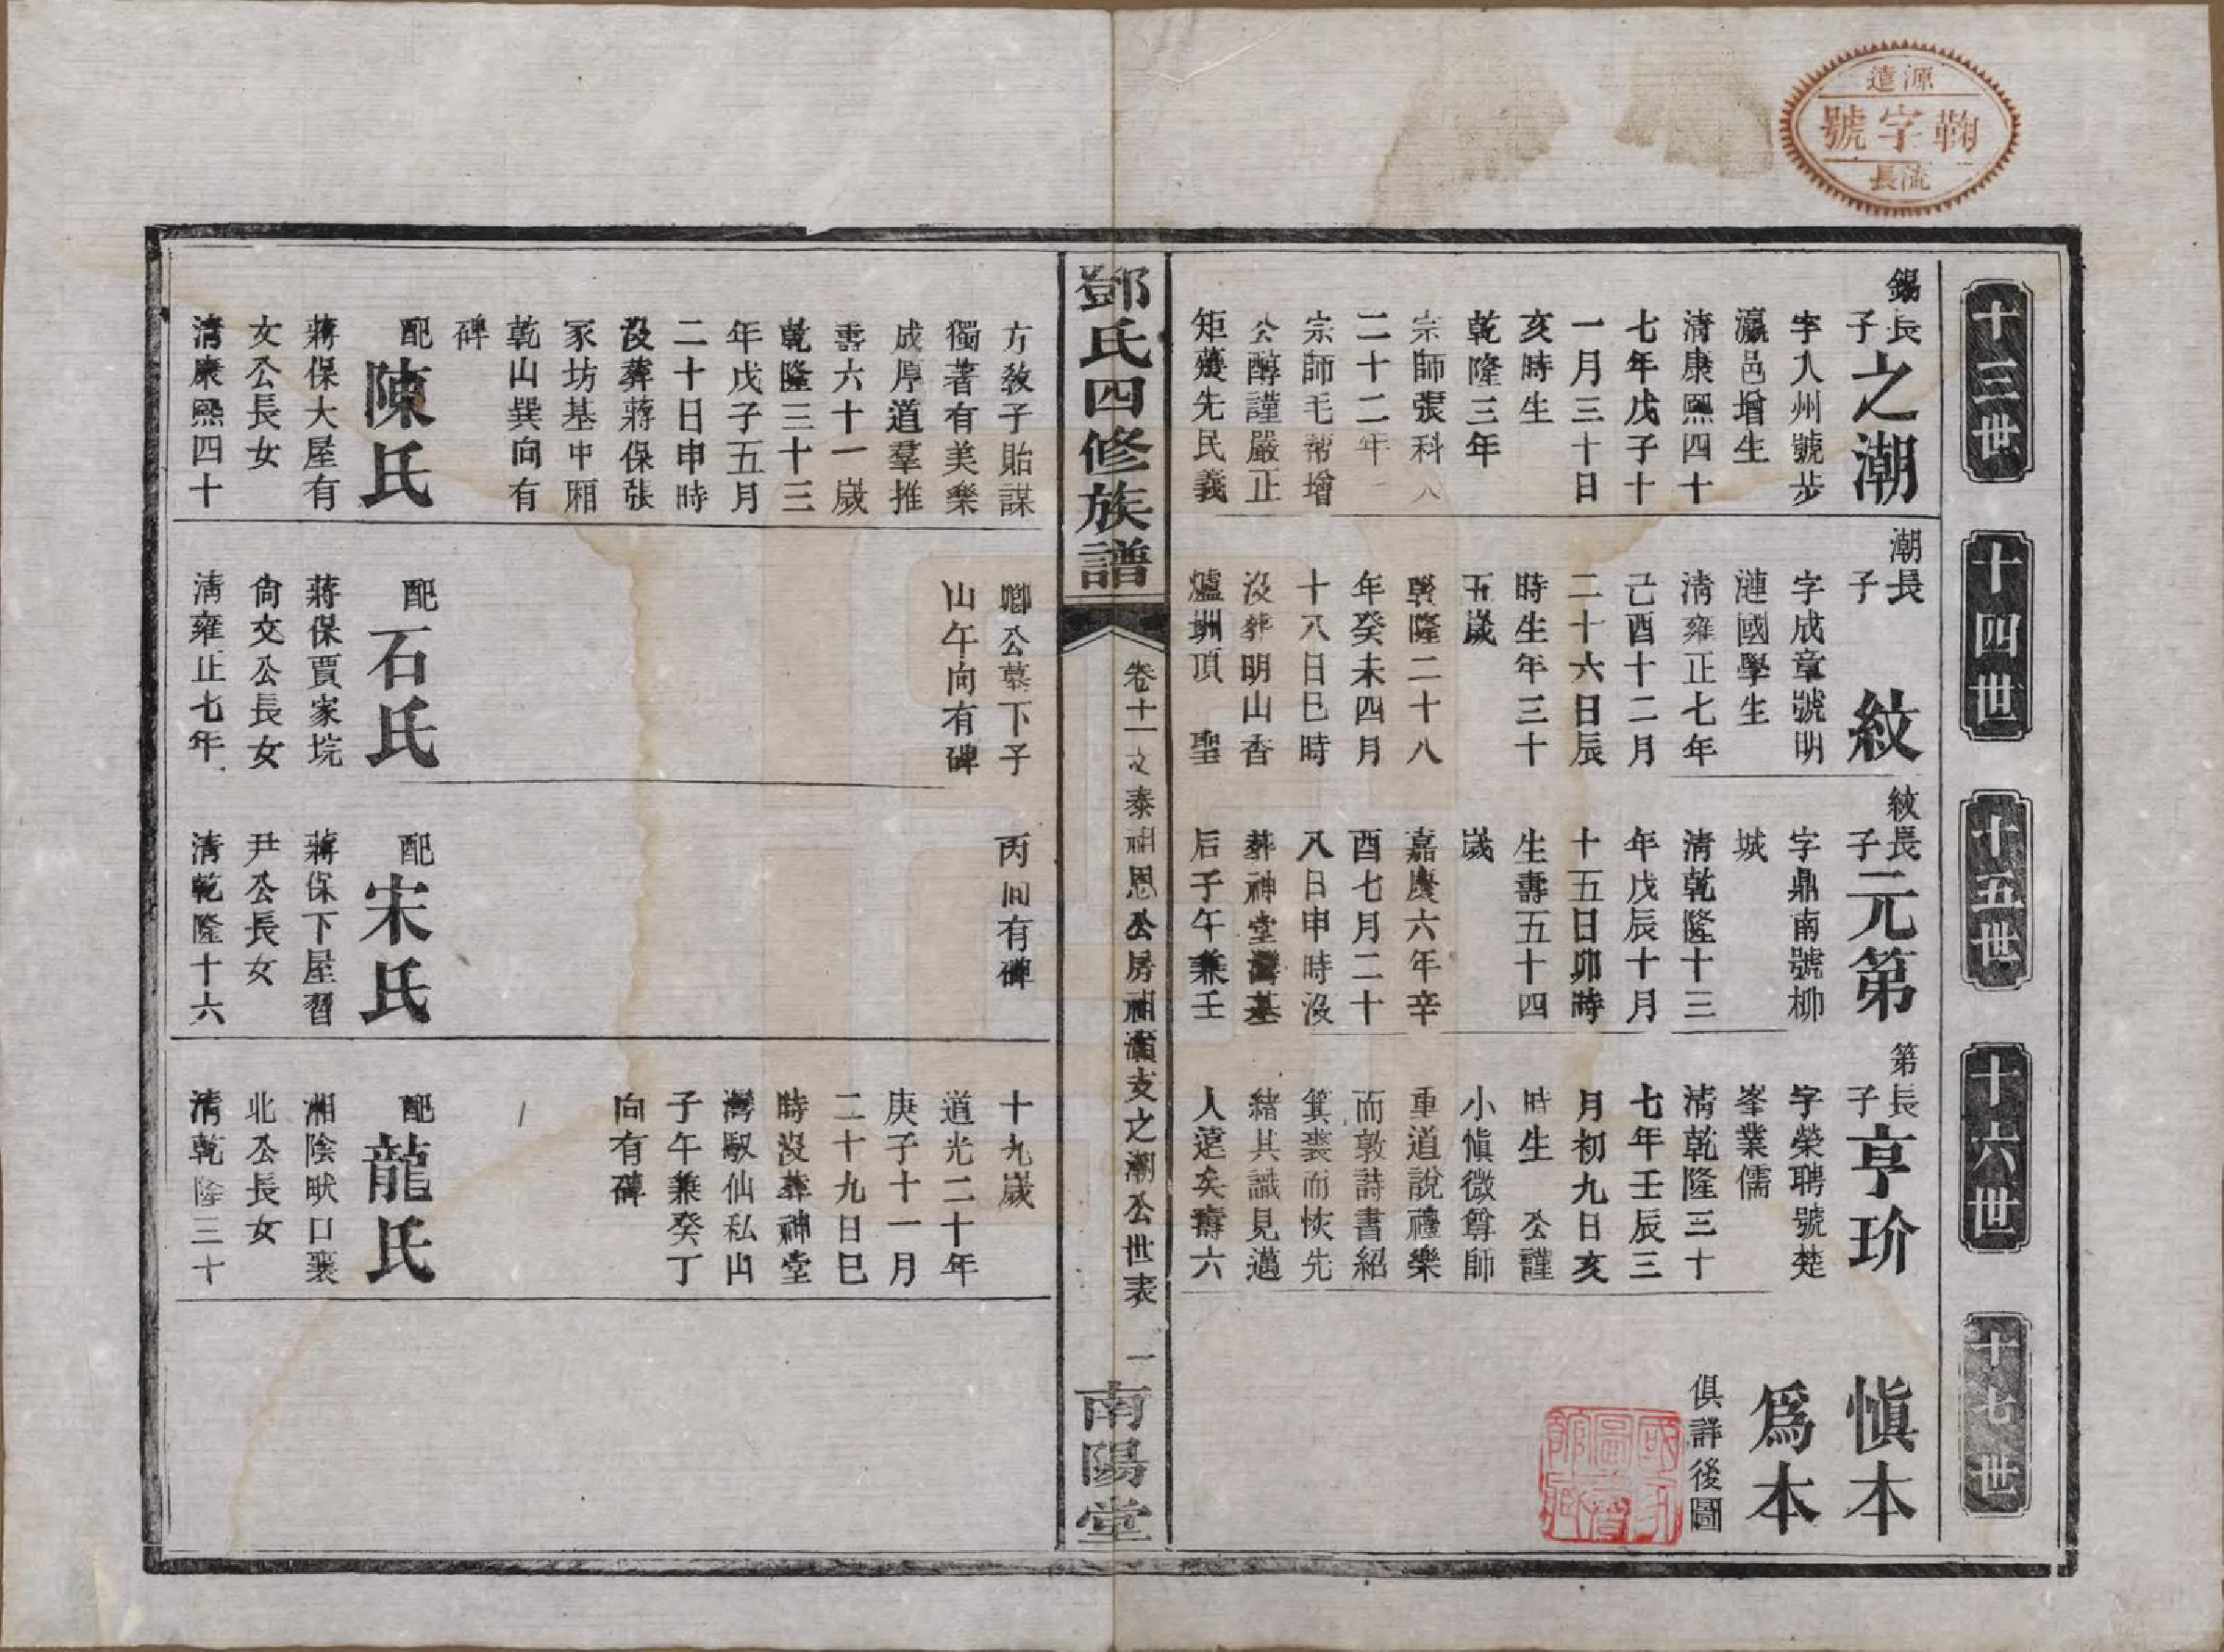 源遠
鞠字號
流長
十三世
十四世
十五世
十六世
十七世
錫長子
之潮
字入州號步
瀛邑增生
清康熙四十
七年戊子十
一月三十日
亥時生
乾隆三年
宗師張科入
二十二年
宗師毛幇增
公醇謹嚴正
矩矱先民義
潮長子
紋
字成章號明
漣國學生
清雍正七年
己酉十二月
二十六日辰
時生年三十
五歲
乾隆二十八
年癸未四月
十八日巳時
沒葬明山香
爐坩頂 聖
紋長子
元第
字鼎南號柳
城
清乾隆十三
年戊辰十月
十五日卯時
生壽五十四
歲
嘉慶六年辛
酉七月二十
八日申時沒
葬神堂灣基
后子午兼壬
第長子
亨玠
字榮聘號楚
峯業儒
清乾隆三十
七年壬辰三
月初九日亥
時生 公謹
小愼微尊師
重道說禮樂
而敦詩書紹
箕裘而恢先
緒其識見邁
人遠矣壽六
愼本
爲本
俱詳後圖
國家圖書館藏
鄧氏四修族譜
卷十一文泰祖恩公房祖瀆支之潮公世表
一
南陽堂
方敎子貽謀
獨著有美樂
成厚道羣推
壽六十一歲
乾隆三十三
年戊子五月
二十日申時
沒葬蔣保張
冢坊基中廂
乾山巽向有
碑
配
陳氏
蔣保大屋有
女公長女
清康熙四十
卿公墓下子
山午向有碑
配
石氏
蔣保賈家垸
尙文公長女
清雍正七年
丙向有碑
配
宋氏
蔣保下屋習
尹公長女
清乾隆十六
十九歲
道光二十年
庚子十一月
二十九日巳
時沒葬神堂
灣馭仙私山
子午兼癸丁
向有碑
配
龍氏
湘陰畎口襄
北公長女
清乾隆三十